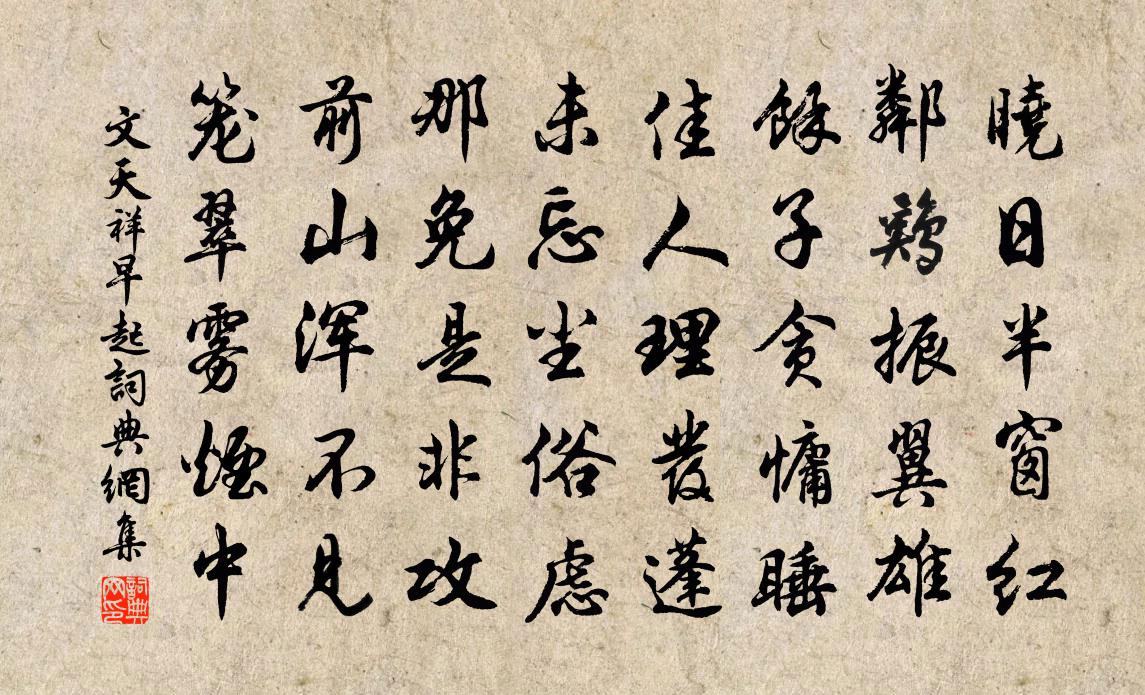 曉日半窗红
鄰鷄振翼雄
餘子貪慵睡
佳人理發蓬
未忘尘俗慮
那免是非攻
前山浑不見
笼翠雾煙中
文天祥早起詞典網集
詞典
网印